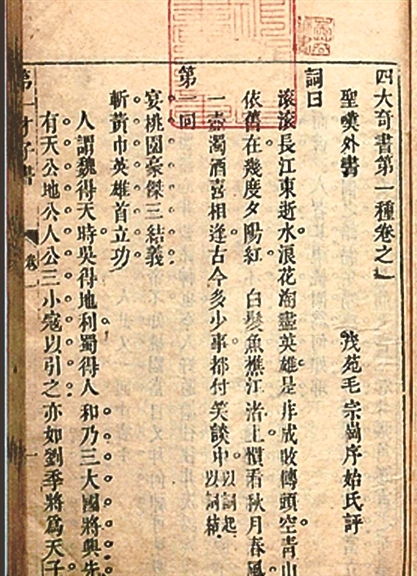 四大奇書第一種卷之一
聖嘆外書
茂苑毛宗崗序始氏評
詞曰
滚滚長江東逝水浪花淘盡英雄是非成敗轉頭空青山
依舊在幾度夕陽紅 白髮魚樵江渚上慣看秋月春風
一壺濁酒喜相逢古今多少事都付笑談中 以詞起以詞結
第一回
宴桃園豪傑三結義
斬黃巾英雄首立功
人謂魏得天時吳得地利蜀得人和乃三大國將興先
有天公地公人公三小寇以引之亦如劉季將爲天子
第一才子書 卷一